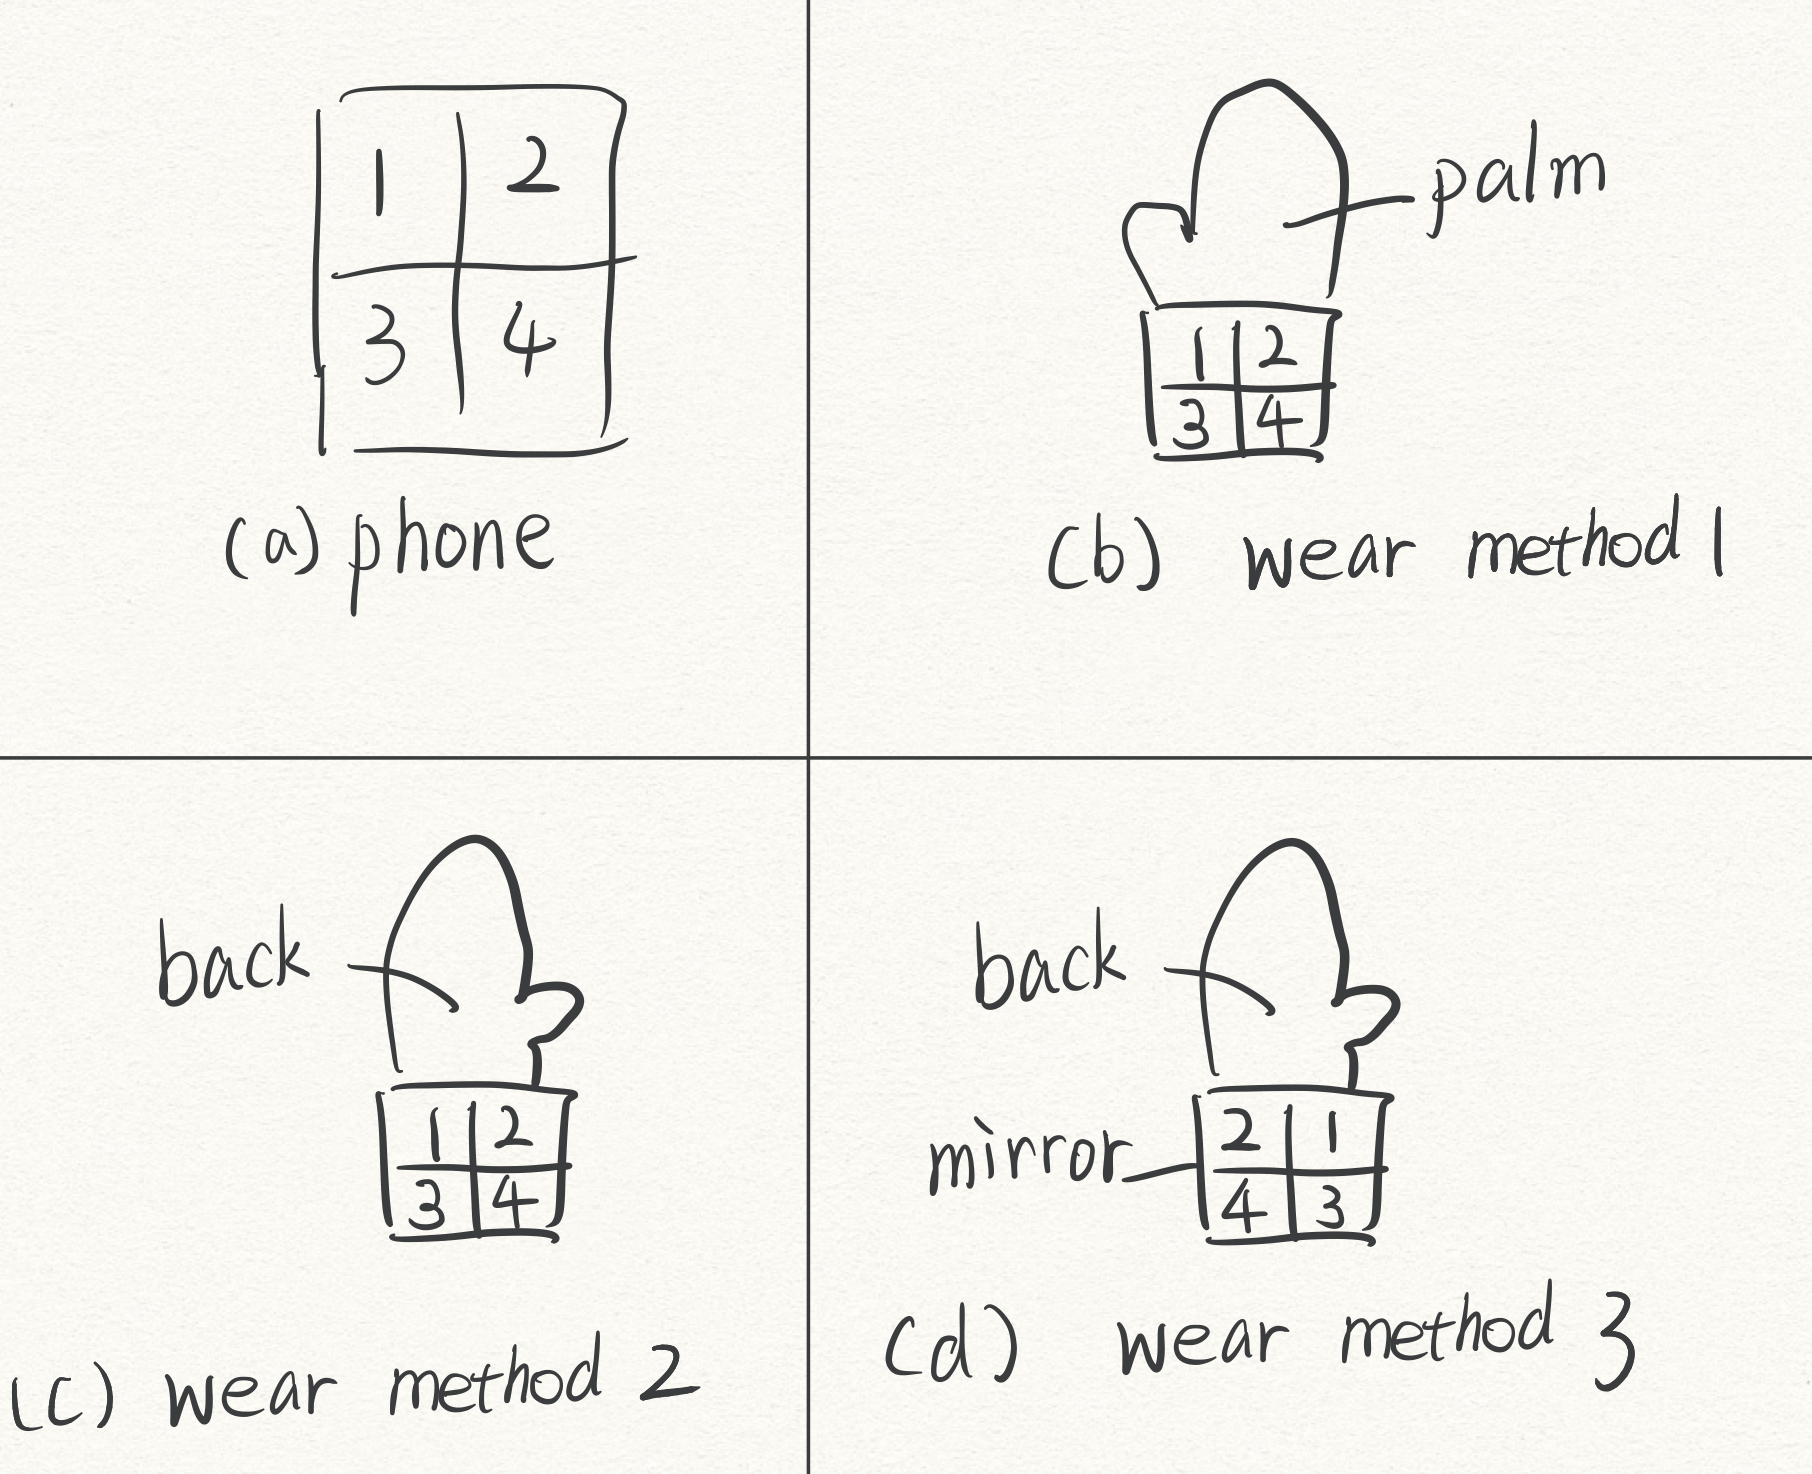 1 2
3 4
(a) phone
palm
1 2
3 4
(b) wear method 1
back
1 2
3 4
(c) wear method 2
back
mirror
2 1
4 3
(d) wear method 3